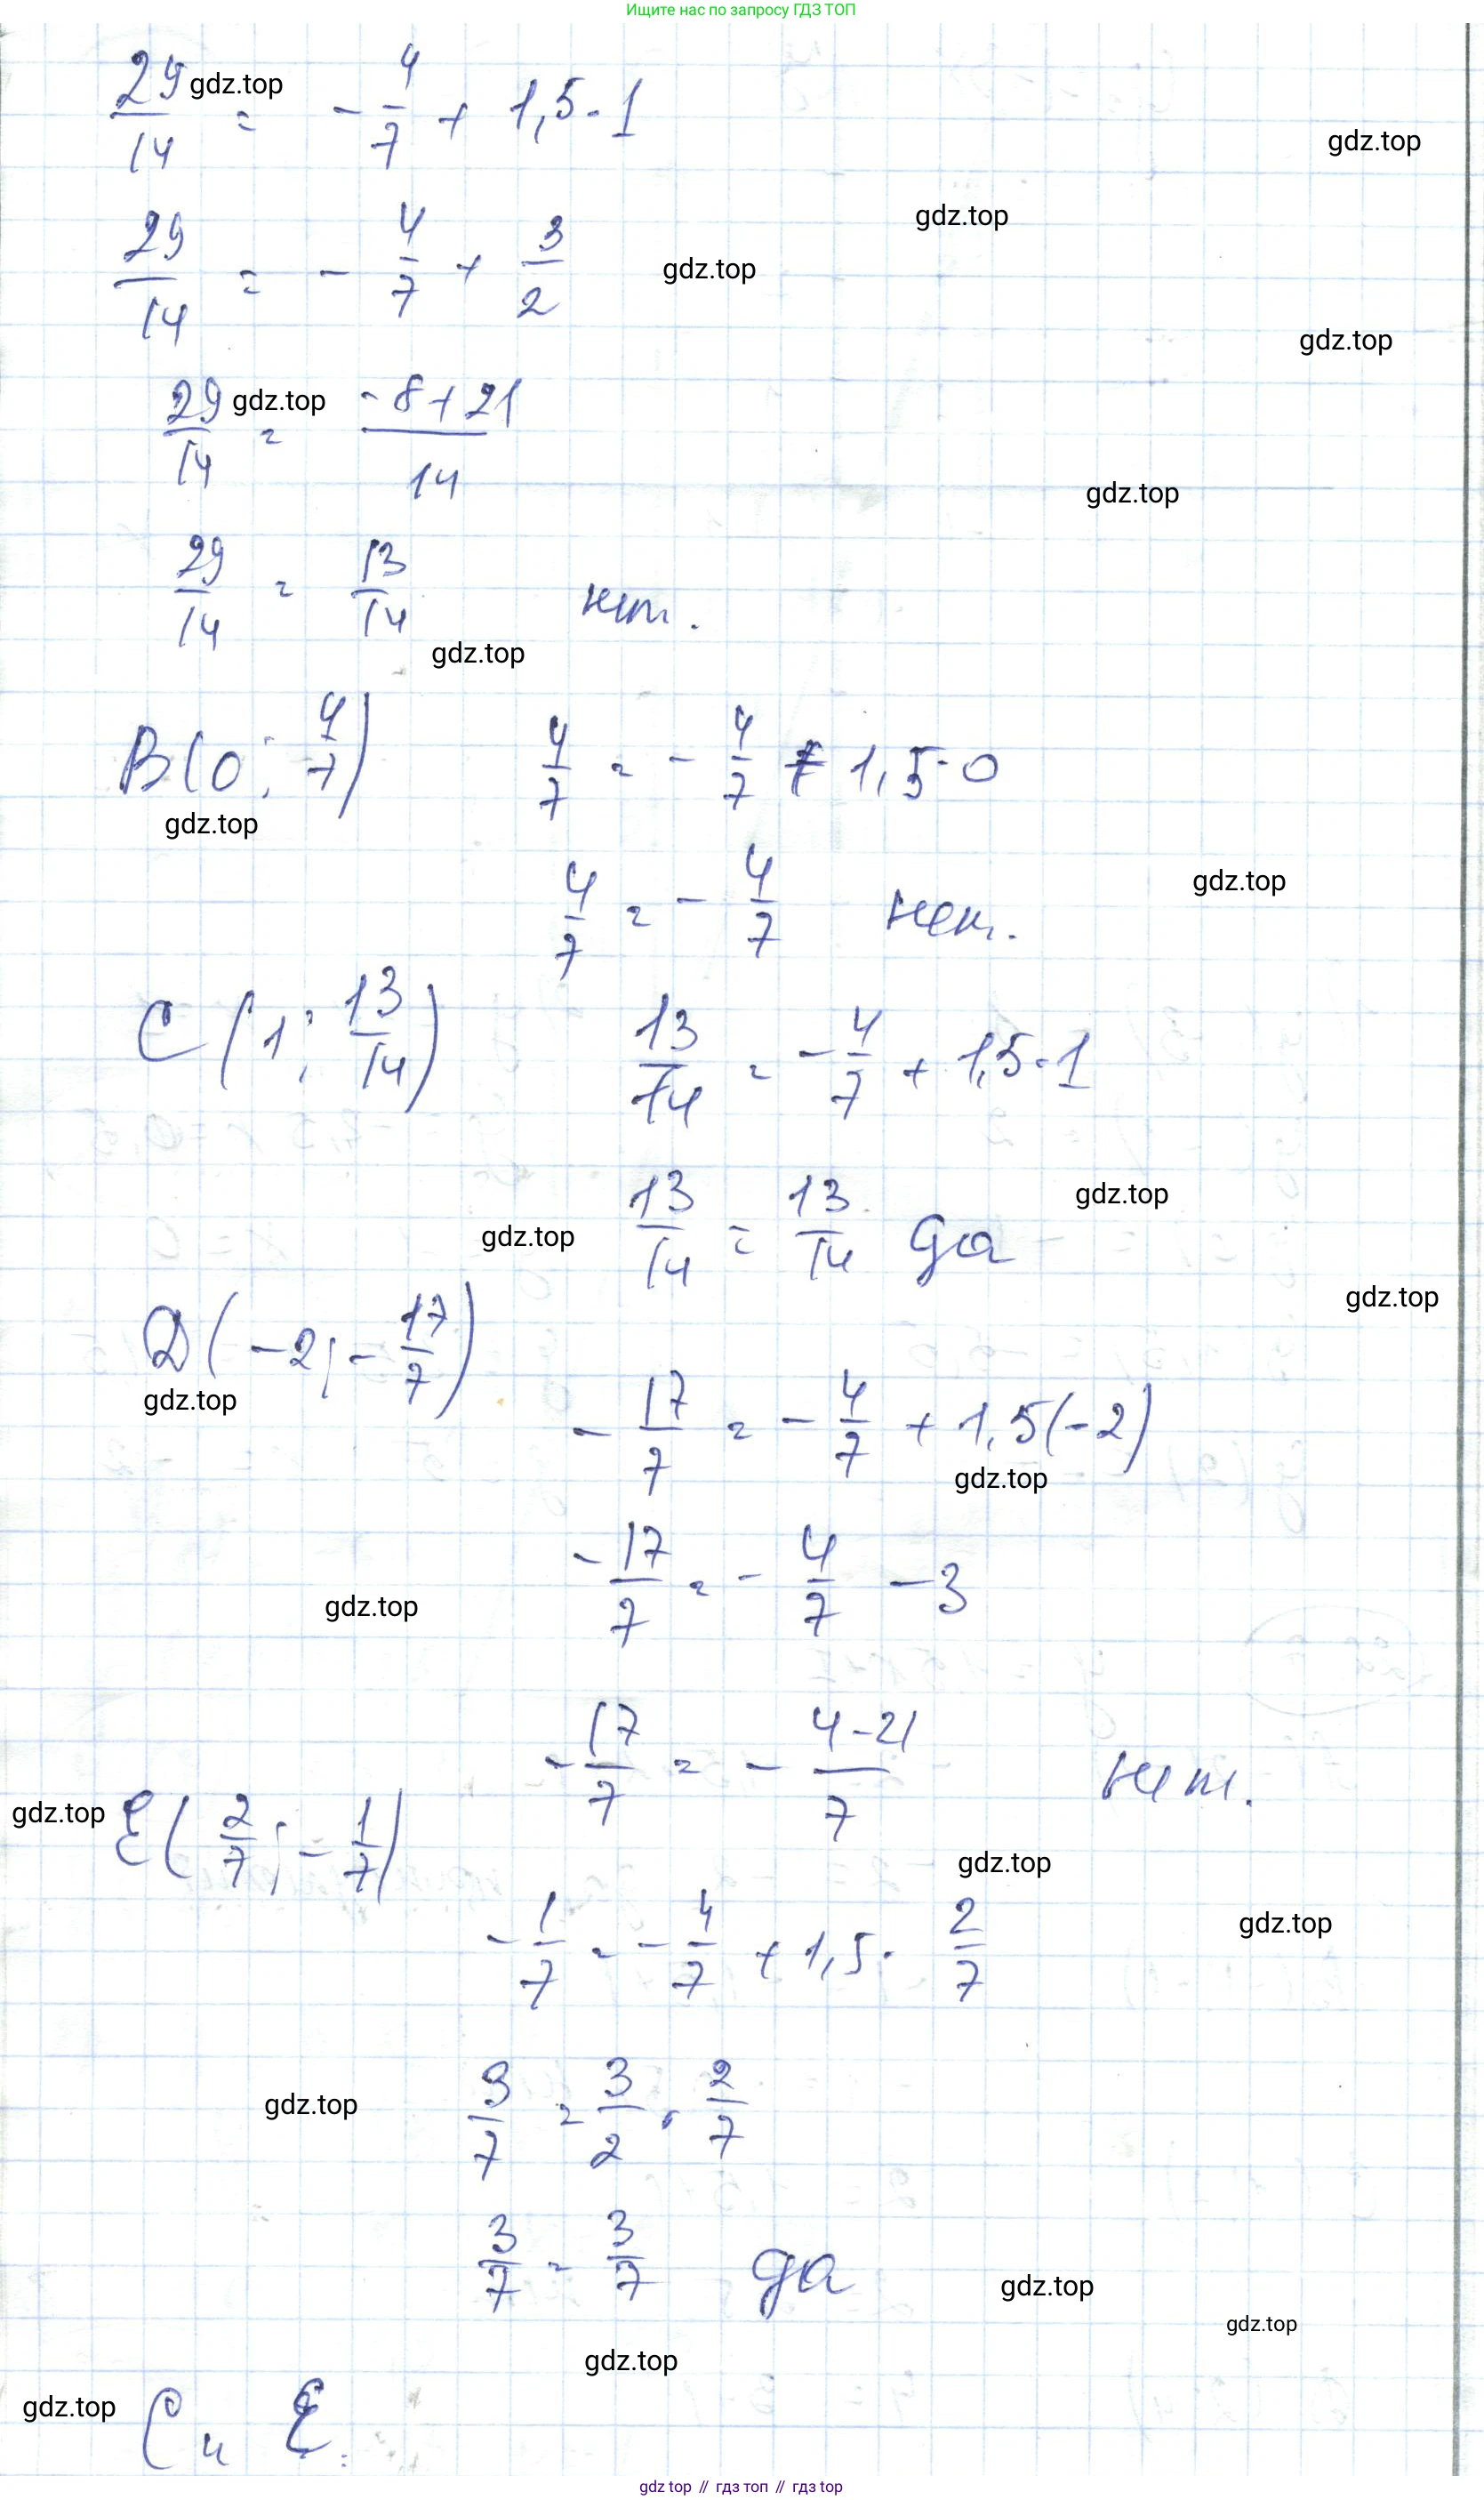 Ищите нас по запросу ГДЗ ТОП
29/14 = - 4/7 + 1,5·1
gdz.top
gdz.top
gdz.top
29/14 = - 4/7 + 3/2
gdz.top
gdz.top
29/14 = (-8+21)/14
gdz.top
gdz.top
29/14 = 13/14 нет.
gdz.top
B(0; 4/7) 4/7 = - 4/7 + 1,5·0
gdz.top
4/7 = - 4/7 нет.
gdz.top
C(1; 13/14) 13/14 = - 4/7 + 1,5·1
gdz.top
13/14 = 13/14 да
gdz.top
gdz.top
D(-2; - 17/7)
gdz.top
- 17/7 = - 4/7 + 1,5(-2)
gdz.top
- 17/7 = - 4/7 - 3
gdz.top
- 17/7 = - (4-21)/7 нет.
gdz.top
E(2/7; - 1/7)
gdz.top
- 1/7 = - 4/7 + 1,5· 2/7
gdz.top
gdz.top
3/7 = 3/2 · 2/7
3/7 = 3/7 да
gdz.top
gdz.top
gdz.top
gdz.top
C и E.
gdz top // гдз топ // гдз top